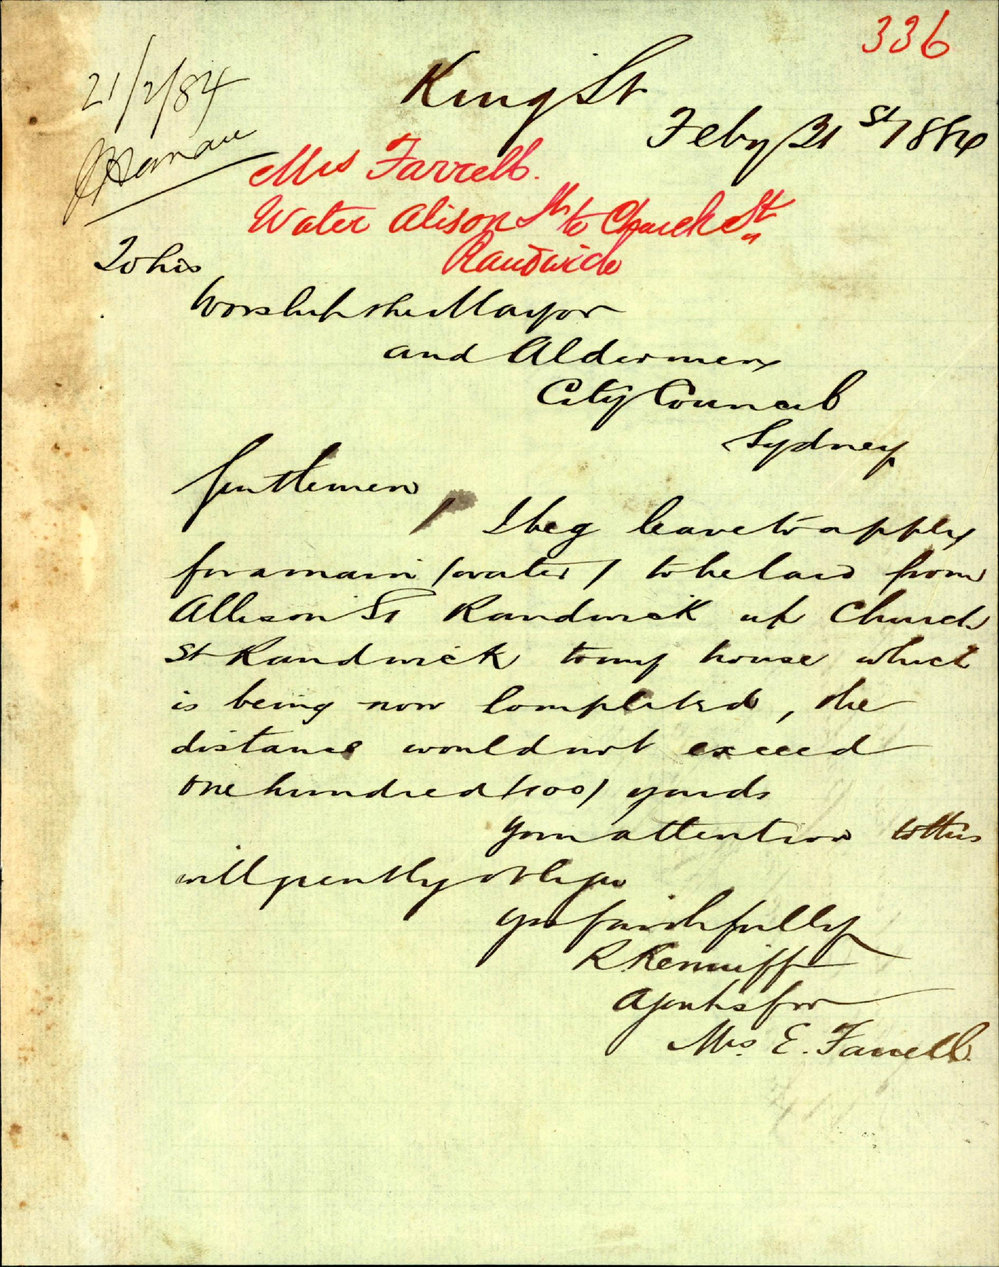 336
21/2/84
King St
Feby 21st 1884
Mrs Farrell.
Water Alison St to Church St
Randwick
To his
Worship the Mayor
and Aldermen
City Council
Sydney
Gentlemen
I beg leave to apply
for a main (water) to be laid from
Allison St Randwick up Church
St Randwick to my house which
is being now completed, the
distance would not exceed
one hundred (100) yards
Your attention to this
will greatly oblige
Yrs faithfully
R Kenniff
Agent for
Mrs. E. Farrell